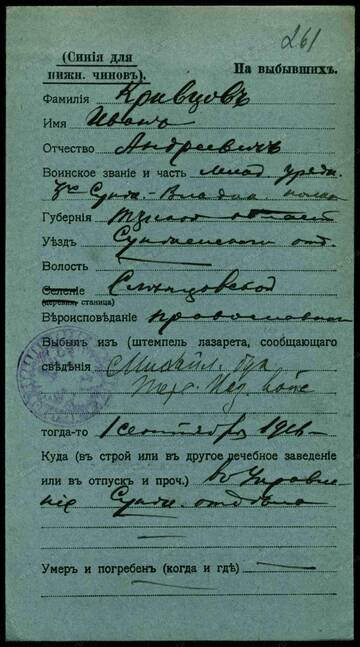 261
(Синія для
нижн. чиновъ).
На выбывшихъ.
Фамилія Кривцовъ
Имя Иванъ
Отчество Андреевичъ
Воинское званіе и часть млад. уряд.
Сунж.-Владик. полка
Губернія Терская область
Уѣздъ Сунженскаго отд.
Волость
Селеніе Слѣпцовской
(деревня, станица)
Вѣроисповѣданіе православнаго
Выбылъ изъ (штемпель лазарета, сообщающаго
свѣдѣнія) Михайл.
тогда-то 1 сентября 1916
Куда (въ строй или въ другое лечебное заведеніе
или въ отпускъ и проч.) въ Управле-
ніе Сунж. отдѣла
Умеръ и погребенъ (когда и гдѣ)